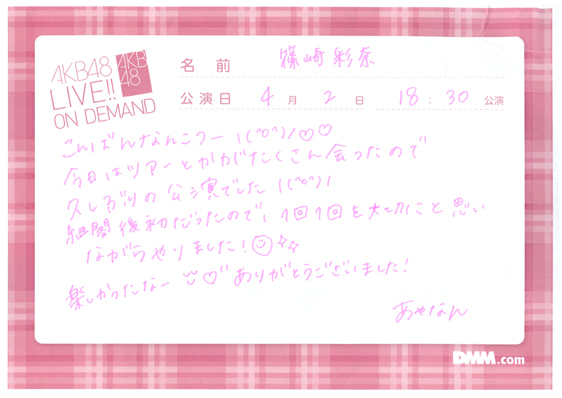 AKB48
LIVE!!
ON DEMAND
AKB
48
名前 篠崎彩奈
公演日 4月2日 18:30公演
こんばんなんこつー \(^o^)/♡♡
今日はツアーとかがたくさん会ったので
久しぶりの公演でした \(^o^)/
組閣後初だったので、1回1回を大切にと思い
ながらやりました!☺
楽しかったなー ♡ ありがとうございました!
あやなん
DMM.com